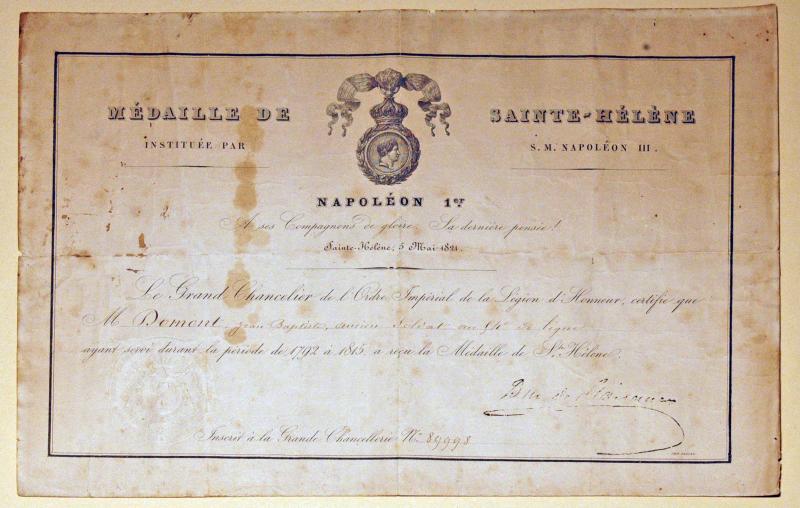 MÉDAILLE DE SAINTE-HÉLÈNE
INSTITUÉE PAR S. M. NAPOLÉON III.
NAPOLÉON 1er
A ses Compagnons de gloire, Sa dernière pensée!
Sainte-Hélène, 5 Mai 1821.
Le Grand Chancelier de l'Ordre Impérial de la Légion d'Honneur, certifie que
M. Domont, Jean Baptiste, ancien Soldat au 94e de ligne
ayant servi durant la période de 1792 à 1815, a reçu la Médaille de Ste Hélène.
Duc de Plaisance
Inscrit à la Grande Chancellerie No 89998